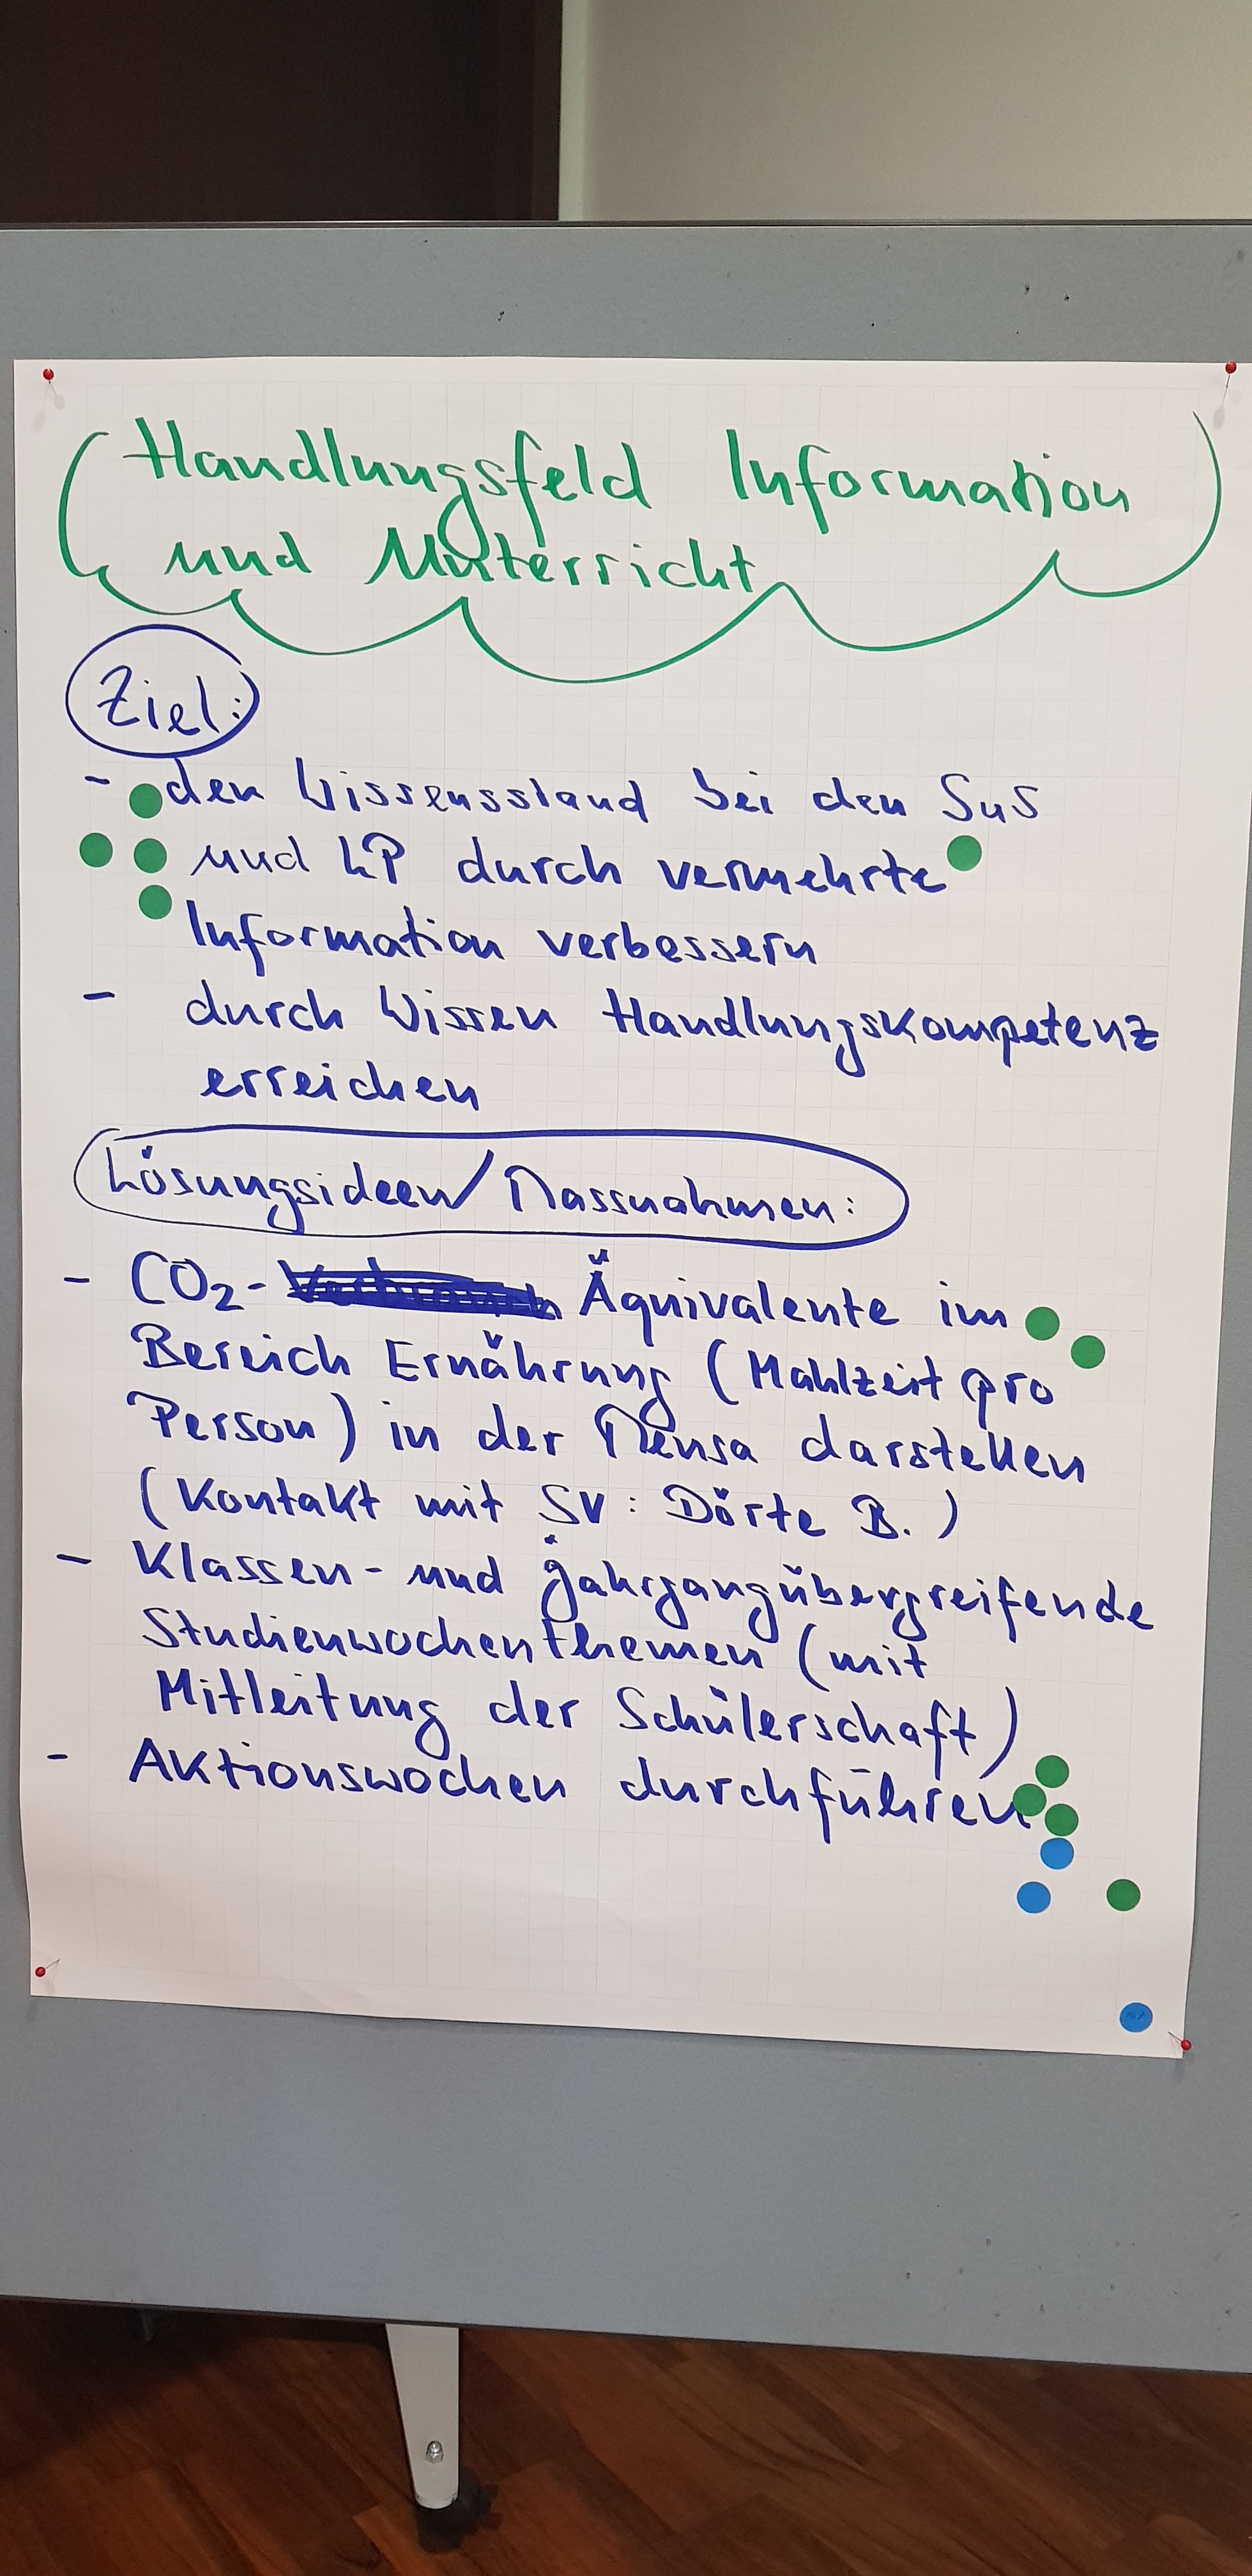 Handlungsfeld Information
und Unterricht
Ziel:
- den Wissensstand bei den SuS
und LP durch vermehrte
Information verbessern
- durch Wissen Handlungskompetenz
erreichen
Lösungsideen/Massnahmen:
- CO2- Äquivalente im
Bereich Ernährung (Mahlzeit pro
Person) in der Mensa darstellen
(Kontakt mit SV: Dörte B.)
- Klassen- und jahrgangübergreifende
Studienwochenthemen (mit
Mitleitung der Schülerschaft)
- Aktionswochen durchführen